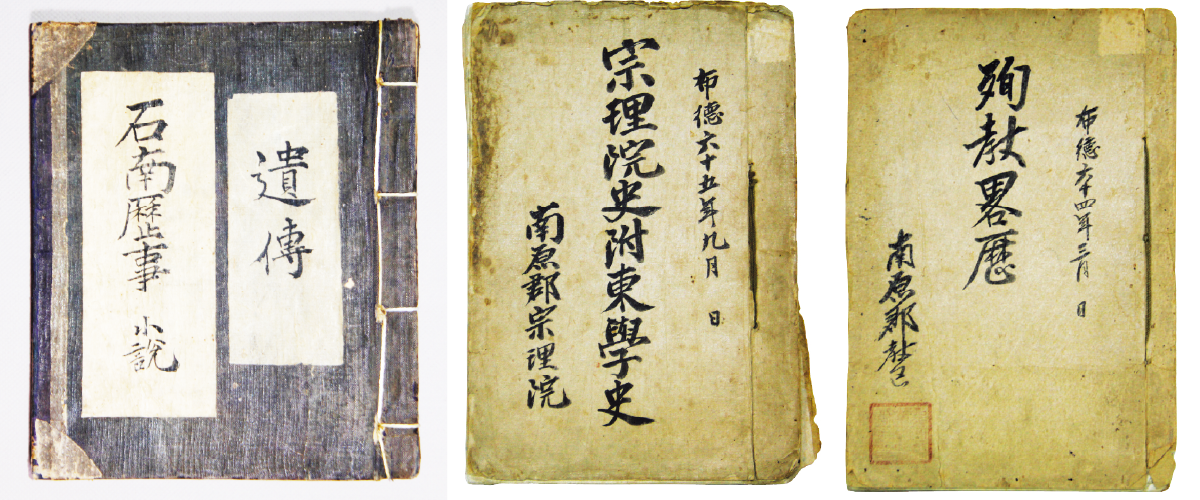 遺傳
石南歴事 小說
布德六十五年九月 日
宗理院史附東學史
南原郡宗理院
布德六十四年三月 日
殉教畧歷
南原郡教